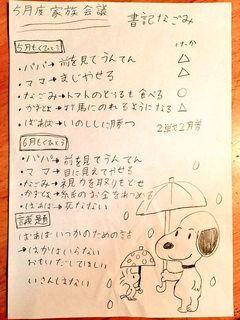 5月度家族会議 書記なごみ
5月もくひょう けっか
・パパ→前を見てうんてん △
・ママ→まじやせる △
・なごみ→トマトのどろも食べる ○
→竹馬にのれるようになる △
・ばあば→いのししに勝つ 2戦2月勝
6月もくひょう
・パパ→前を見てうんてん
・ママ→目に見えてやせる
・なごみ→視力を取りもどす
→お金をあつめる
・ばあば→死なない
議題
ばあばいつかのための
→はかはいらない
おもいだしてほしい
いさんはない